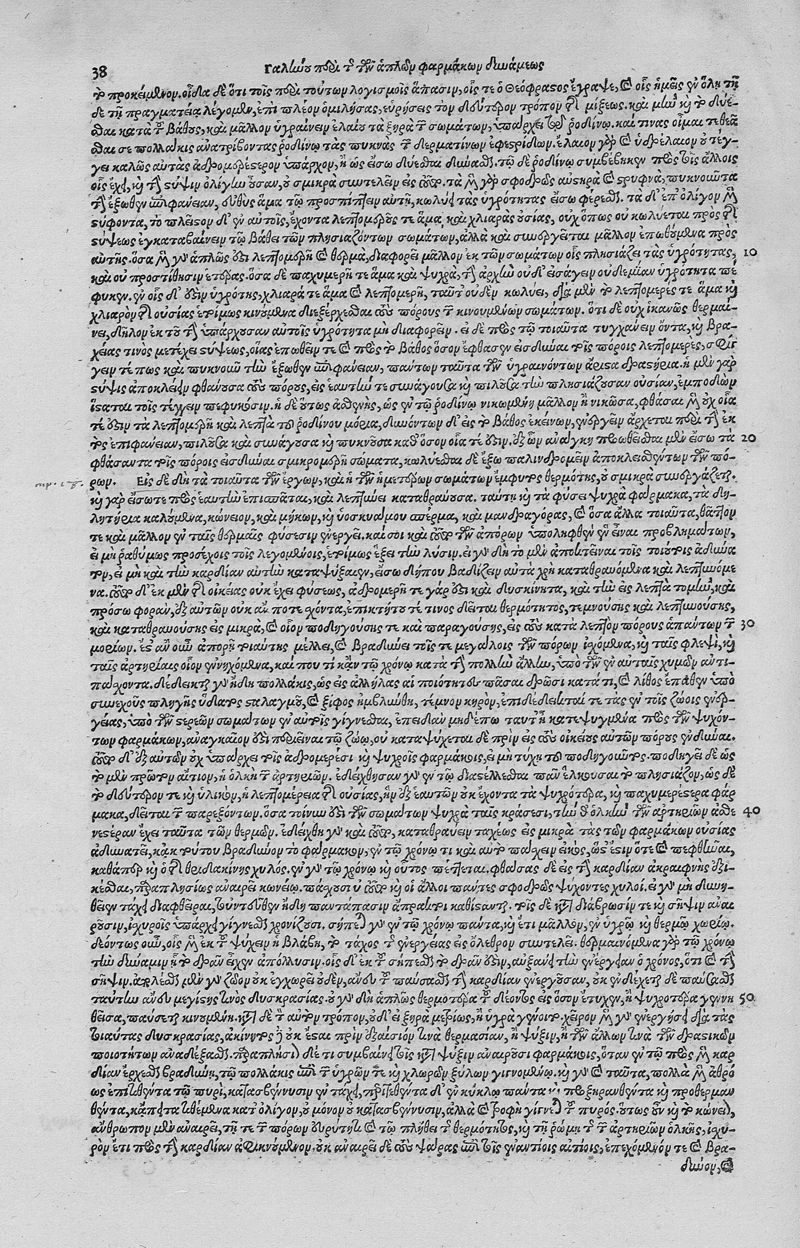 38 Γαληνοῦ περὶ τῆς τῶν ἁπλῶν φαρμάκων δυνάμεως
τὸ προκείμενον. οἶδα δὲ ὅτι τοῖς περὶ τούτων λογισμοῖς ἅπασιν, οἷς τε ὁ Θεόφραστος ἔγραψε, καὶ οἷς ἡμεῖς ἐν ὅλῃ τῇ
δὲ τῇ πραγματείᾳ λέγομεν, ἐπὶ πλέον ὁμιλήσας, εὑρήσεις τὸν δεύτερον τρόπον τῆς μίξεως. καὶ μὴν καὶ τὸ δύε-
σθαι κατὰ τὸ βάθος, καὶ μᾶλλον ὑγραίνειν ἐλαίου τὰ ξηρὰ τῶν σωμάτων, ὑπάρχει τῷ ῥοδίνῳ. καί τινας οἶμαι τεθεᾶ-
σθαί σε πολλάκις ἀνατρίβοντας ῥοδίνῳ τὰς πυκνὰς τῶν δερματίνων ἐφεστρίδων. ἔλαιον γὰρ καὶ ὑδρέλαιον οὐ τέγ-
γει καλῶς αὐτὰς ἁδρομερέστερον ὑπάρχον, ἢ ὡς εἴσω δύεσθαι δύνασθαι. τῷ δὲ ῥοδίνῳ συμβέβηκεν πρὸς τοῖς ἄλλοις
οἷς ἔχει, καὶ τὴν στύψιν ὀλίγην οὖσαν, οὐ σμικρὰ συντελεῖν εἰς τοῦτο. τὰ μὲν γὰρ σφοδρῶς αὐστηρὰ καὶ στρυφνὰ, πυκνοῦντα
τὴν ἔξωθεν ἐπιφάνειαν, εὐθὺς ἅμα τῷ προσπίπτειν αὐτῇ, κωλύει τὰς ὑγρότητας εἴσω φέρεσθαι. τὰ δ' ἐπ' ὀλίγον μὲν
στύφοντα, τὸ πλεῖστον δ' ἐν αὐτοῖς, ἔχοντα λεπτομεροῦς τε ἅμα καὶ χλιαρᾶς οὐσίας, οὐχ ὅπως οὐ κωλύεται πρὸς τῆς
στύψεως ἐγκαταβαίνειν τῷ βάθει τῶν πλησιαζόντων σωμάτων, ἀλλὰ καὶ συνεργεῖται μᾶλλον ἐπωθούμενα πρὸς
αὐτῆς. ὅσα μὲν γὰρ ἁπλῶς ἐστι λεπτομερῆ καὶ θερμὰ, διαφορεῖ μᾶλλον ἐκ τῶν σωμάτων οἷς πλησιάζει τὰς ὑγρότητας, 10
καὶ οὐ προστίθησιν ἑτέρας. ὅσα δὲ παχυμερῆ τε ἅμα καὶ ψυχρὰ, τὴν ἀρχὴν οὐδ' εἰσάγειν οὐδεμίαν ὑγρότητα πέ-
φυκεν. ἐν οἷς δ' ἐστὶν ὑγρότης, χλιαρά τε ἅμα καὶ λεπτομερὴς, ταῦτ' οὐδὲν κωλύει, διὰ μὲν τὸ λεπτομερές τε ἅμα καὶ
χλιαρὸν τῆς οὐσίας ἑτοίμως κινούμενα διεξέρχεσθαι τοὺς πόρους τῶν κινουμένων σωμάτων. ὅτι δὲ οὐχ ἱκανῶς θερμαί-
νει, δῆλον ἐκ τοῦ τὴν ὑπάρχουσαν αὐτοῖς ὑγρότητα μὴ διαφορεῖν. εἰ δὲ πως τῷ τοιαῦτα τυγχάνειν ὄντα, καὶ βρα-
χείας τινὸς μετέχει στύψεως, οἵας ἐπωθεῖν τε καὶ πρὸς τὸ βάθος ὅσον ἔφθασεν εἰσδῦναι τοῖς πόροις λεπτομερὲς, στέ-
γειν τέ πως καὶ πυκνοῦν τὴν ἔξωθεν ἐπιφάνειαν, πάντων ταῦτα τῶν ὑγραινόντων ἄριστα δραστήρια. ἡ μὲν γὰρ
στύψις ἀποκλείειν φθάνουσα τοὺς πόρους, εἰς ἑαυτήν τε συνάγουσα καὶ πιλοῦσα τὴν πλησιάζουσαν οὐσίαν, ἐμποδὼν
ἵσταται τοῖς τέγγειν πεφυκόσιν. ἡ δὲ οὕτως ἀσθενὴς, ὡς ἐν τῷ ῥοδίνῳ νικωμένη μᾶλλον ἢ νικῶσα, φθάσαι μὲν οὐχ οἵα
τέ ἐστιν τὰ λεπτομερῆ καὶ λεπτὰ τοῦ ῥοδίνου μόρια, δυνόντων δ' εἰς τὸ βάθος ἐκείνων, ἐνεργεῖν ἄρχεται περὶ τὴν ἐκ-
τὸς ἐπιφάνειαν, πιλοῦσα καὶ συνάγουσα καὶ πυκνοῦσα καθ' ὅσον οἵα τέ ἐστιν, ἐξ ὧν ἀνάγκη προωθεῖσθαι μὲν εἴσω τὰ 20
φθάσαντα τοῖς πόροις εἰσδῦναι σμικρομερῆ σώματα, κωλύεσθαι δὲ ἔξω παλινδρομεῖν ἀποκλεισθέντων τῶν πό-
ρων. Εἰς δὲ δὴ τὰ τοιαῦτα τῶν ἔργων, καὶ ἡ τῶν ἡμετέρων σωμάτων ἔμφυτος θερμότης, οὐ σμικρὰ συνεργάζεται.
καὶ γὰρ εἴσω τε πρὸς ἑαυτὴν ἐπισπᾶται, καὶ λεπτύνει καταθραύουσα. ταύτῃ καὶ τὰ φύσει ψυχρὰ φάρμακα, τὰ δη-
λητήρια καλούμενα, κώνειον, καὶ μήκων, καὶ ὑοσκυάμου σπέρμα, καὶ μανδραγόρας, καὶ ὅσα ἄλλα τοιαῦτα, θᾶττόν
τε καὶ μᾶλλον ἐν ταῖς θερμαῖς φύσεσιν ἐνεργεῖ. καί σοι καὶ τοῦτο τῶν ἀπόρων ὑποληφθὲν ἂν εἶναι προβλημάτων,
εἰ μὴ ῥᾳθύμως προσέχοις τοῖς λεγομένοις, ἑτοίμως ἕξει τὴν λύσιν. εἰ γὰρ δὴ τὸ μὲν ἀποκτεῖναι τοῖς τοιούτοις ἀδύνα-
τον, εἰ μὴ καὶ τὴν καρδίαν αὐτὴν καταψύξαιεν, εἴσω δήπου βαδίζειν αὐτὰ χρὴ καταθραυόμενα καὶ λεπτυνόμε-
να. τοῦτο δ' ἐκ μὲν τῆς οἰκείας οὐκ ἔχει φύσεως, ἁδρομερῆ τε γάρ ἐστι καὶ δυσκίνητα, καὶ τὴν εἰς λεπτὰ τομὴν, καὶ
πρόσω φορὰν, ἐξ αὐτῶν οὐκ ἄν ποτε σχόντα, ἐπικτήτου τέ τινος δεῖται θερμότητος, τεμνούσης καὶ λεπτυνούσης,
καὶ καταθραυούσης εἰς μικρὰ, καὶ οἷον ποδηγούσης τε καὶ παραγούσης, εἰς τοὺς κατὰ λεπτὸν πόρους ἁπάντων τῶν 30
μορίων. ἔστ' ἂν οὖν ἀπορῇ τοιαύτης μέλλει, καὶ βραδύνει τοῖς τε μεγάλοις τῶν πόρων ἰσχόμενα, καὶ ταῖς φλεψὶ, καὶ
ταῖς ἀρτηρίαις οἷον ἐννηχόμενα, καί που τι κἂν τῷ χρόνῳ κατὰ τὴν πολλὴν ἄλλην, ὑπὸ τῶν ἐν αὐταῖς χυμῶν ἀντι-
πάσχοντα. δέδεικται γὰρ ἤδη πολλάκις, ὡς εἰς ἀλλήλας αἱ ποιότητες πᾶσαι δρῶσι κατά τι, καὶ λίθος ἔπαθεν ὑπὸ
συνεχοῦς πληγῆς ὕδατος σταλαγμὸς, καὶ ξίφος ἠμβλύνθη, τέμνον κηρὸν, ἐπιδέδεικται τε τὰς ἐν τοῖς ζώοις ἐνερ-
γείας, ὑπὸ τῶν στερεῶν σωμάτων ἐν αὐτοῖς γίγνεσθαι, ἐπειδὰν μηδέπω ταυτὶ κατεψυγμένα πρὸς τῶν ψυχόν-
των φαρμάκων, ἀναγκαῖόν ἐστι περιεῖναι τῷ ζώῳ, οὐ καταψύχεται δὲ πρὶν εἰς τοὺς οἰκείους αὐτῶν πόρους ἐνδῦναι.
τοῦτο δ' ἐξ αὑτῶν οὐχ ὑπάρχει τοῖς ἁδρομερέσι καὶ ψυχροῖς φαρμάκοις, εἰ μὴ τύχῃ τοῦ ποδηγοῦντος. ποδηγεῖ δὲ ὡς
τὸ μὲν πρῶτον αἴτιον, ἡ ὁλκὴ τῶν ἀρτηριῶν. ἐδείχθησαν γὰρ ἐν τῷ διαστέλλεσθαι πᾶν ἕλκουσαι τὸ πλησιάζον, ὡς δὲ
τὸ δεύτερόν τε καὶ ὑλικὸν, ἡ λεπτομέρεια τῆς οὐσίας, ἣν ἐξ ἑαυτῶν οὐκ ἔχοντα τὰ ψυχρότερα, καὶ παχυμερέστερα φάρ-
μακα, δεῖται τοῦ παρέξοντος. ὅσα τοίνυν ἐστὶ τῶν σωμάτων ψυχρὰ ταῖς κράσεσι, τὴν θ' ὁλκὴν τῶν ἀρτηριῶν ἀσθε- 40
νεστέραν ἔχει ταῦτα τῶν θερμῶν. ἐδείχθη γὰρ καὶ τοῦτο, καταθραύειν ταχέως εἰς μικρὰ τὰς τῶν φαρμάκων οὐσίας
ἀδυνατεῖ, κἀκ τούτου βραδῦνον τὸ φάρμακον, ἐν τῷ χρόνῳ τι καὶ αὐτὸ πάσχειν εἰκὸς, ὡς ἔστιν ὅτε καὶ πεφθῆναι,
καθάπερ καὶ ὁ τῆς θριδακίνης χυλός. ἐν γὰρ τῷ χρόνῳ καὶ οὗτος πέττεται. φθάσας δὲ εἰς τὴν καρδίαν ἀκραιφνὴς ἐξι-
κέσθαι, παραπλησίως ἀναιρεῖ κωνείῳ. πάσχουσι τοῦτο καὶ οἱ ἄλλοι πάντες σφοδρῶς ψύχοντες χυλοί. εἰ γὰρ μὴ δυνη-
θεῖεν τάχει διαφθεῖραι, ἐντεῦθεν ἤδη παντάπασιν ἄπρακτοι καθίστανται. τοῖς δὲ κατὰ διάβρωσίν τε καὶ σῆψιν ἀναι-
ροῦσιν, ἰσχυροῖς ὑπάρχει γίγνεσθαι χρονίζουσι. σήπεται γὰρ ἐν τῷ χρόνῳ πάντα, καὶ ἔτι μᾶλλον, ἐν ὑγρῷ καὶ θερμῷ χωρίῳ.
δεόντως οὖν, οἷς μὲν ἐκ τοῦ ψύχειν ἡ βλάβη, τὸ τάχος τῆς ἐνεργείας εἰς ὄλεθρον συντελεῖ. θερμαινόμενα γὰρ τῷ χρόνῳ
τὴν δύναμιν ᾗ τὸ δρᾶν εἶχεν ἀπόλλυσιν. οἷς δ' ἐκ τοῦ σήπεσθαι τὸ δρᾶν ἐστιν, αὐξάνει τὴν ἐνέργειαν ὁ χρόνος, ὅτι καὶ τὴν
σῆψιν. ἀπολέσθαι μὲν γὰρ ζῷον οὐκ ἐγχωρεῖ οὐδὲν, ἄνευ τοῦ παύσασθαι τὴν καρδίαν ἐνεργοῦσαν, οὐκ ἐνδέχεται δὲ παύσασθαι
ταύτην ἄνευ μεγίστης τινὸς δυσκρασίας. οὐ γὰρ δὴ ἁπλῶς θερμοτέρα τοῦ δέοντος εἰς ὅσον ἔτυχεν, ἢ ψυχροτέρα γεννη- 50
θεῖσα, παύσεται κινουμένη. κατὰ δὲ τὸν αὐτὸν τρόπον, οὐδ' εἰ ξηρὰ μετρίως, ἢ ὑγρὰ γένοιτο. χεῖρον μὲν γὰρ ἐνεργήσει διὰ τὰς
τοιαύτας δυσκρασίας, ἀκίνητος δ' οὐκ ἔσται πρὶν ἐξαίσιόν τινα θερμασίαν, ἢ ψύξιν, ἢ τῶν ἄλλων τινὰ τῶν δραστικῶν
ποιοτήτων ἀναδέξασθαι. παραπλήσιον δέ τι συμβαίνει τοῖς κατὰ ψύξιν ἀναιροῦσι φαρμάκοις, ὅταν ἐν τῷ πρὸς μὲν καρ-
δίαν ἔρχεσθαι βραδύνῃ, τῷ πολλάκις ἐπὶ τῶν ὑγρῶν τε καὶ χλωρῶν ξύλων γιγνομένῳ. καὶ γὰρ καὶ ταῦτα, πολλὰ μὲν ἀθρό-
ως ἐπιτεθέντα τῷ πυρὶ, κατασβέννυσιν ἐν τάχει, περιτεθέντα δ' ἐν κύκλῳ πάντα προξηρανθέντα καὶ προθερμαν-
θέντα, κἄπειτα τιθέμενα κατ' ὀλίγον, οὐ μόνον οὐ κατασβέννυσιν, ἀλλὰ καὶ τροφὴ γίγνεται τοῦ πυρός. οὕτως οὖν καὶ τὸ κώνειον,
ἄνθρωπον μὲν ἀναιρεῖ, τῇ τε τῶν πόρων εὐρύτητι καὶ τῷ πλήθει τῆς θερμότητος, καὶ τῇ ῥώμῃ τῆς τῶν ἀρτηριῶν ὁλκῆς, ἰσχυ-
ρὸν ἔτι πρὸς τὴν καρδίαν ἀφικνούμενον. οὐκ ἀναιρεῖ δὲ τοὺς ψᾶρας ἐπὶ τοῖς ἐναντίοις αἰτίοις, ἐπεχόμενόν τε καὶ βρα-
δῦνον, καὶ